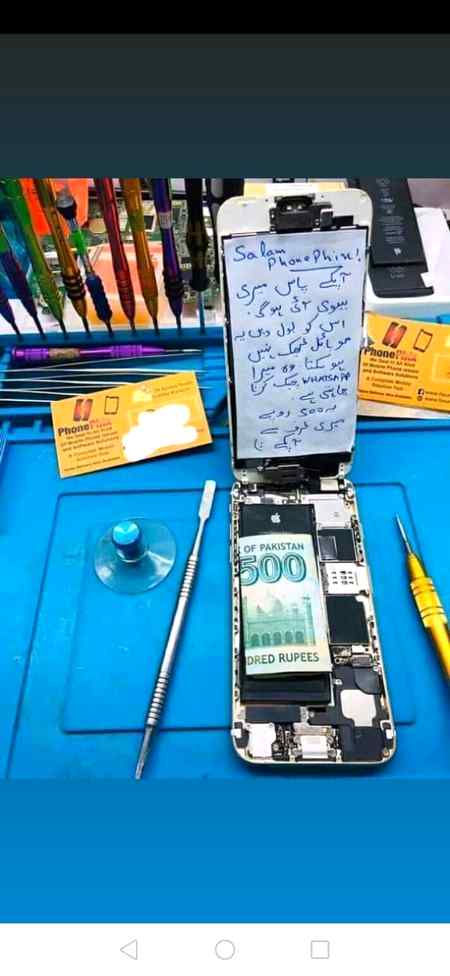 Salam
PhoneFhix!
آپکے پاس میری
بیوی آئی ہوگی
اس کو بول دیں یہ
موبائل ٹھیک نہیں
ہو سکتا وہ میرا
WHATSAPP چیک کرنا
چاہتی ہے
یہ 500 روپے
میری طرف سے
آپکے
Phone
We Deal In All Kind
Of Mobile Phone Repair
and Software Solutions
A Complete Mobile
Solution Hub
Phone
We Deal In All Kind
Of Mobile Phone Repair
and Software Solutions
A Complete Mobile
Solution Hub
OF PAKISTAN
500
DRED RUPEES